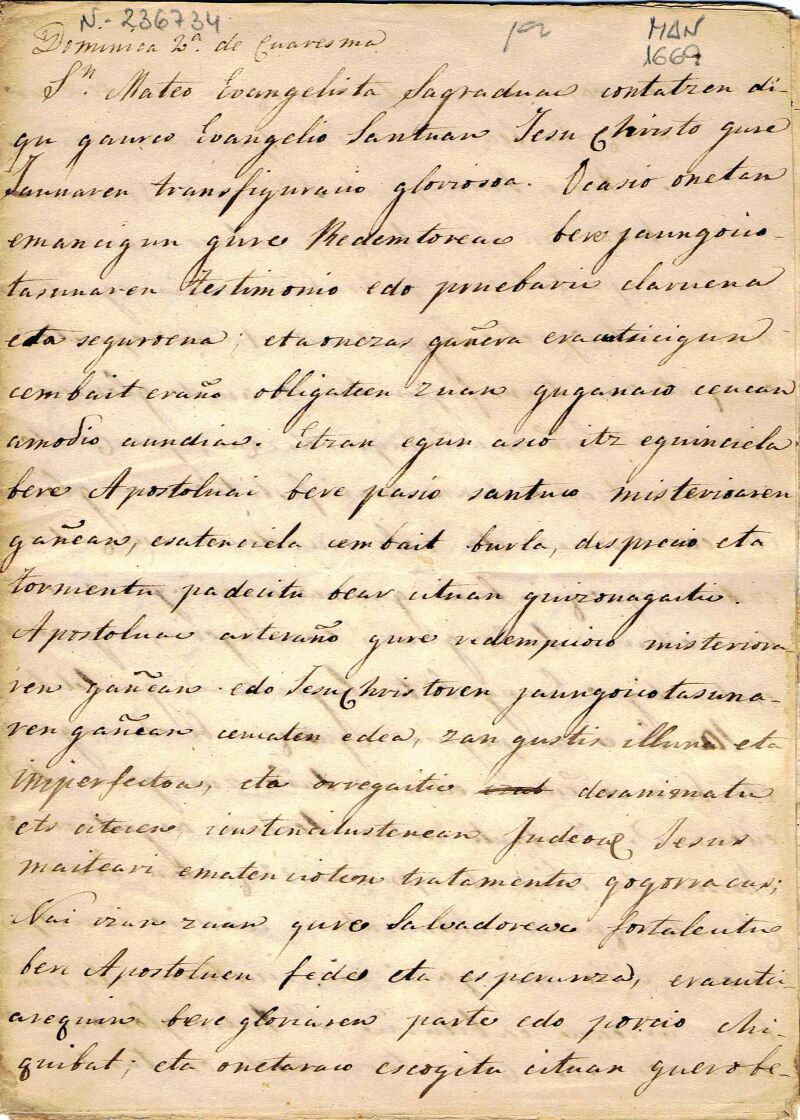 N-236734
MAN
1669
Dominica 2ª. de Cuaresma
Sn. Mateo Evangelista Sagraduac contatzen di-
gu gaurco Evangelio Santuan Jesu Christo gure
Jaunaren transfiguracio gloriosoa. Ocasio onetan
emancigun gure Redemtoreac bere jaungoico-
tasunaren testimonio edo pruebaric claruena
eta seguroena; eta onezas gañera eracutsicigun
cembait eraño obligatcen zuan guganaco ceucan
amodio aundiac. Etzan egun asco itz eguinciela
bere Apostoluai bere pasio santuco misterioaren
gañean, esatenciela cembait burla, desprecio eta
tormentu padecitu bear cituan guizonagatic.
Apostoluac arteraño gure redempcioco misteriora-
ren gañean edo Jesu Christoren jaungoicotasuna-
ren gañean ceucaten edea, zan gustis illuna eta
imperfectoa, eta orregaitic desanimatu
ets citecen, icustencitustenean Judeoac Jesus
maiteari ematencioten tratamentu gogorracas;
Nai izan zuan gure Salvadoreac fortalecitu
bere Apostoluen fedea eta esperanza, eracuti-
arequin bere gloriaren parte edo porcio chi-
quibat; eta onetaraco escogitu cituan guero be-